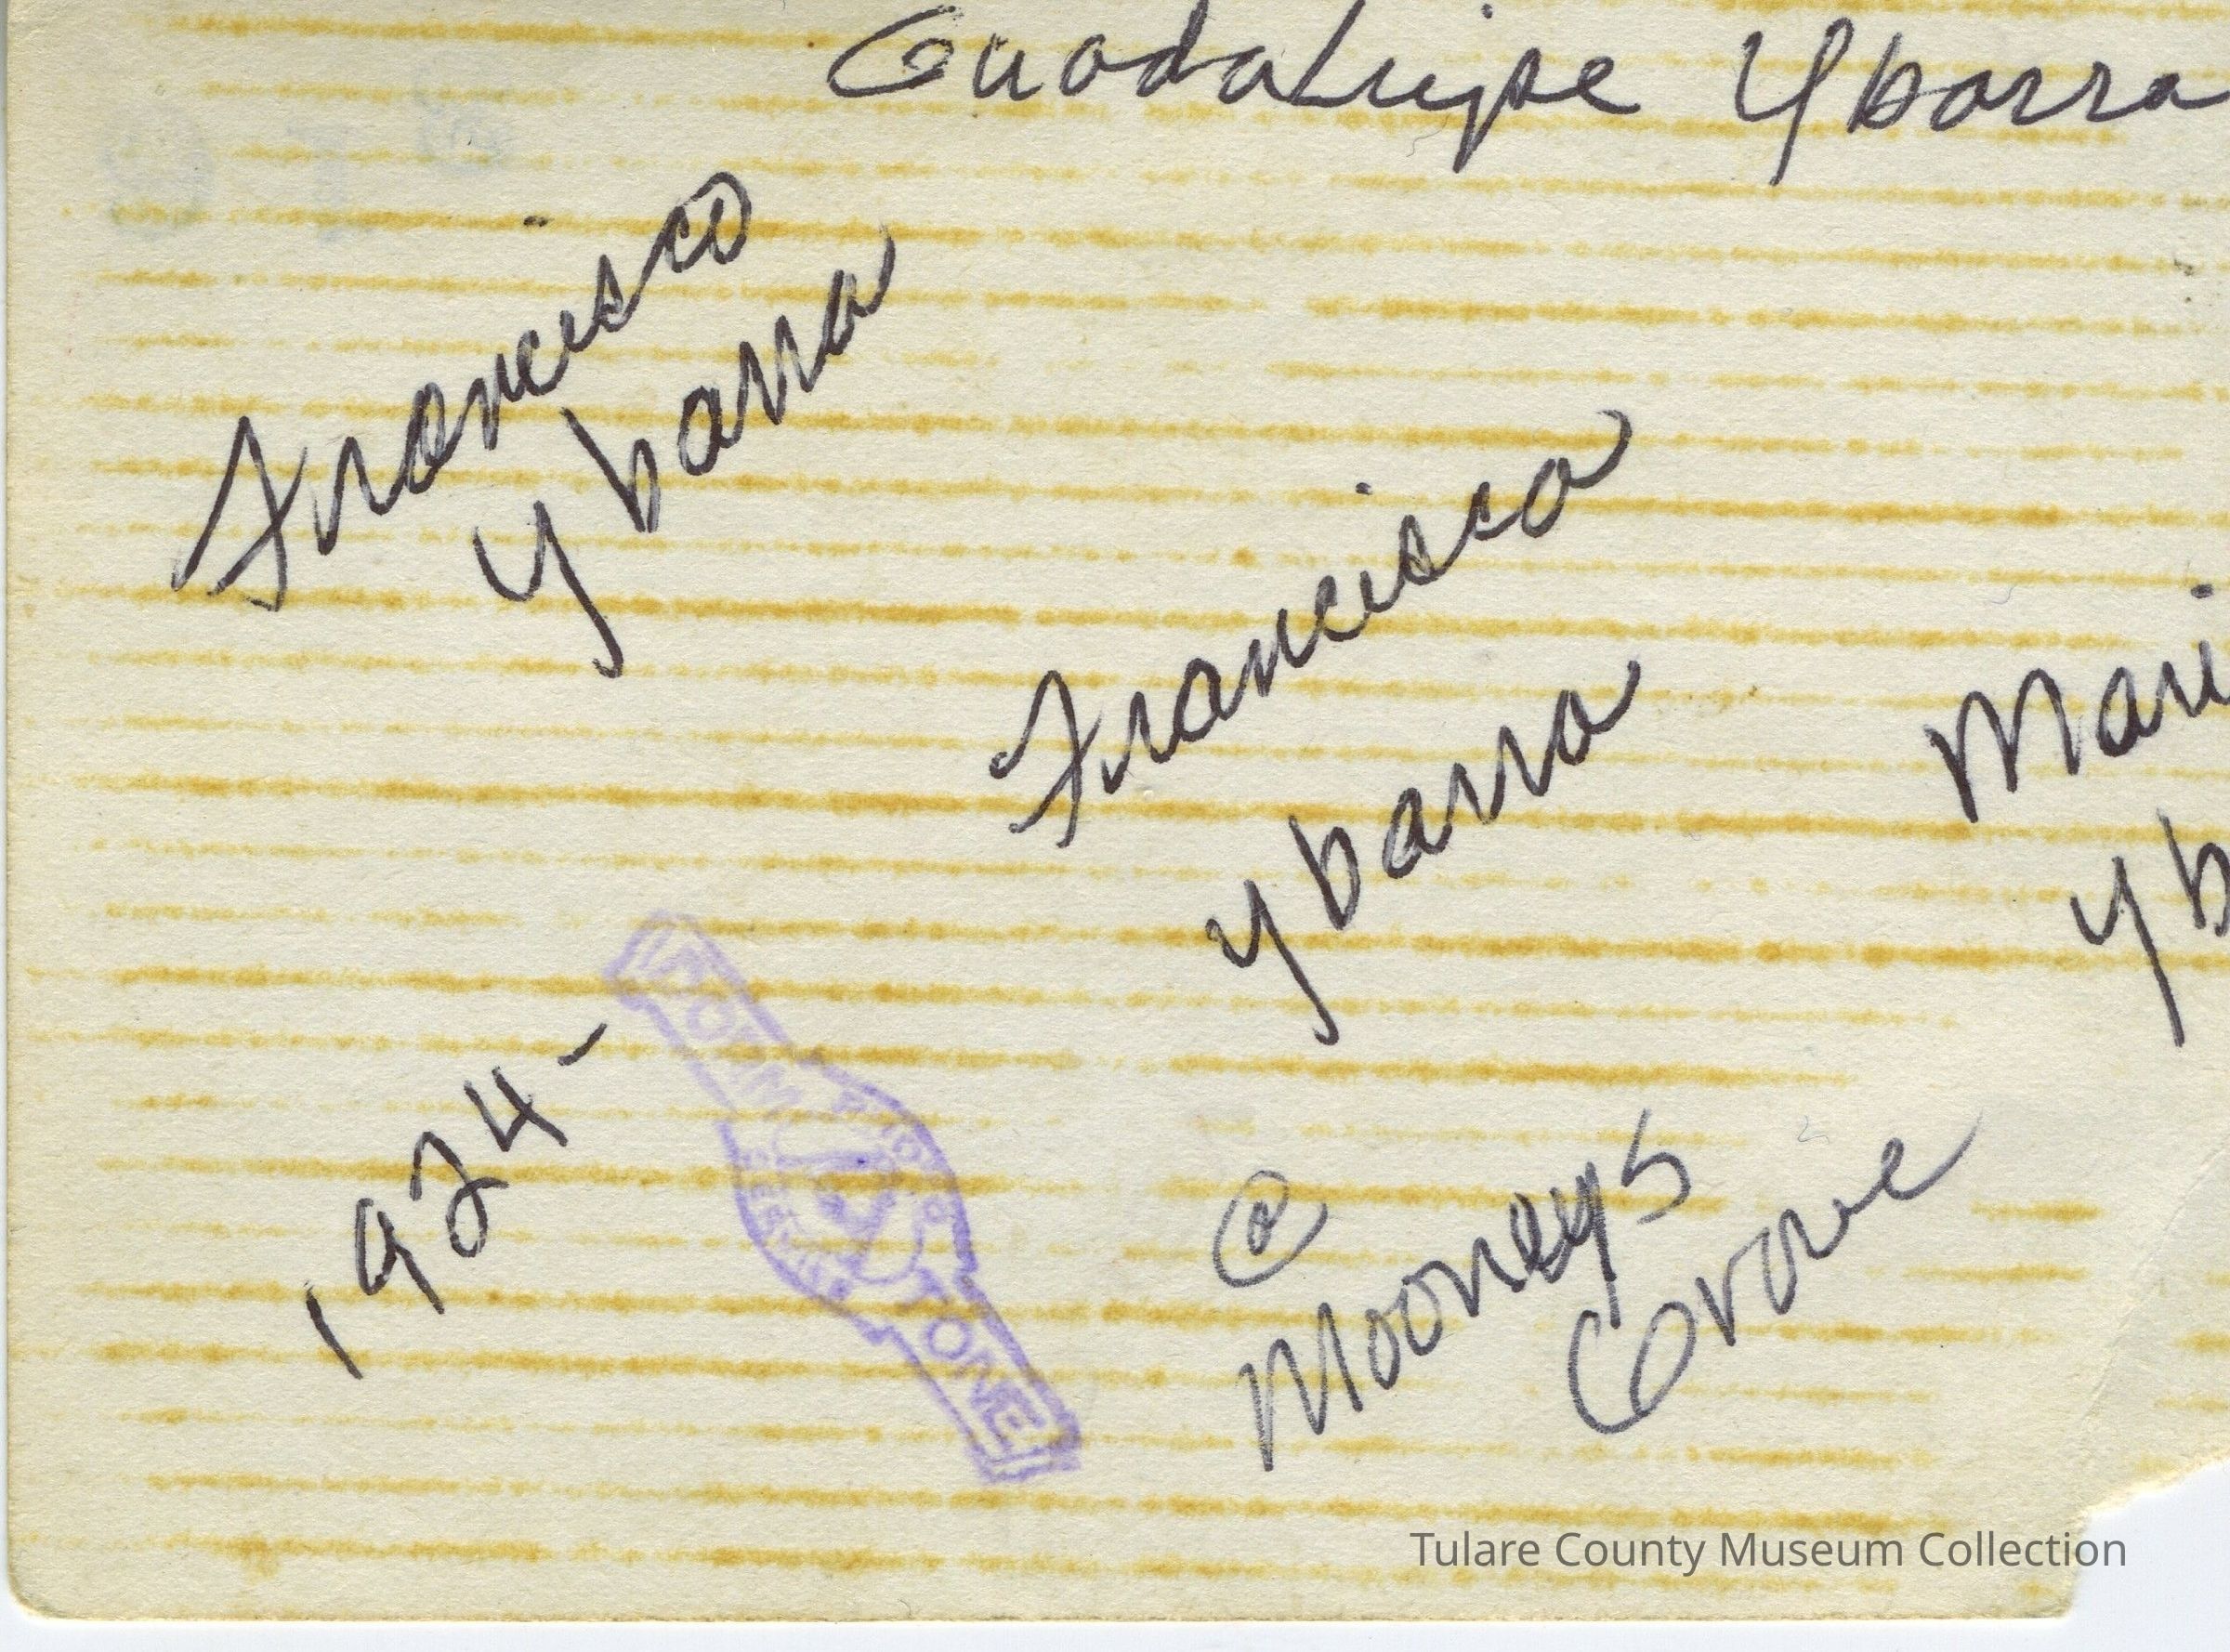 Guadalupe Ybarra
Francisco
Ybarra
Francisca
Ybarra
Mari
Yb
1924-
TONE
@
Mooneys
Grove
Tulare County Museum Collection